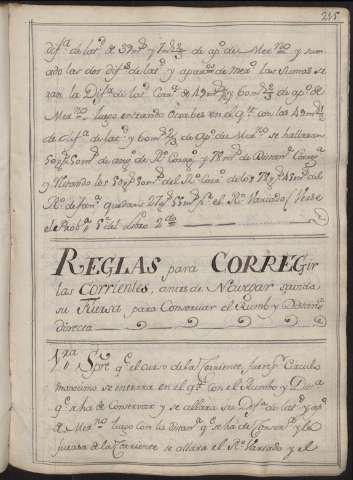 215
dif.ª de lat.ᵈ de 39 m.ˢ y de ap.º de Mer.ⁿᵒ y sum
ado las dos dif.ˢ de lat.ᵈ y apar.ᵐ de mer.º las sumas se
ran la Dif.ª de lat.ᵈ de 49 m y 60 m de ap.º de
Mer.ⁿᵒ luego entrando en el q.ᵉ con los 49 m
de dif.ª de lat.ᵈ y 60 m 2/3 de ap.º de Mer.ⁿᵒ se hallaran
50 g.ˢ 50 m.ˢ de ang.º de R.º y 78 m.ˢ de Distan.ª
y los 50 g.ˢ 50 m.ˢ del R.º de los 78 g.ˢ 45 m.ˢ del
R.º quedaran 27 g.ˢ 55 m.ˢ p.ª el R.º Variado / Vease
el Prob.ª 5.º del Libro 2.do
REGLAS para CORREGir
las Corrientes, antes de Navegar savida
su Fuersa para Conservar el Rumb.º y Distan.ª
directa
1.ra Spre q.ᵉ el curso de la Corriente, fuere p.r Circulo
maximo se entrara en el q.ᵉ con el Rumbo y Dist.ª
q.ᵉ se ha de Conservar y se allara su Dif.ª de lat.ᵈ y ap.º
de Mer.ⁿᵒ luego con la distan.ª q.ᵉ se ha de Conser.r y la
fuersa de la Corriente se allara el R.º Variado y el